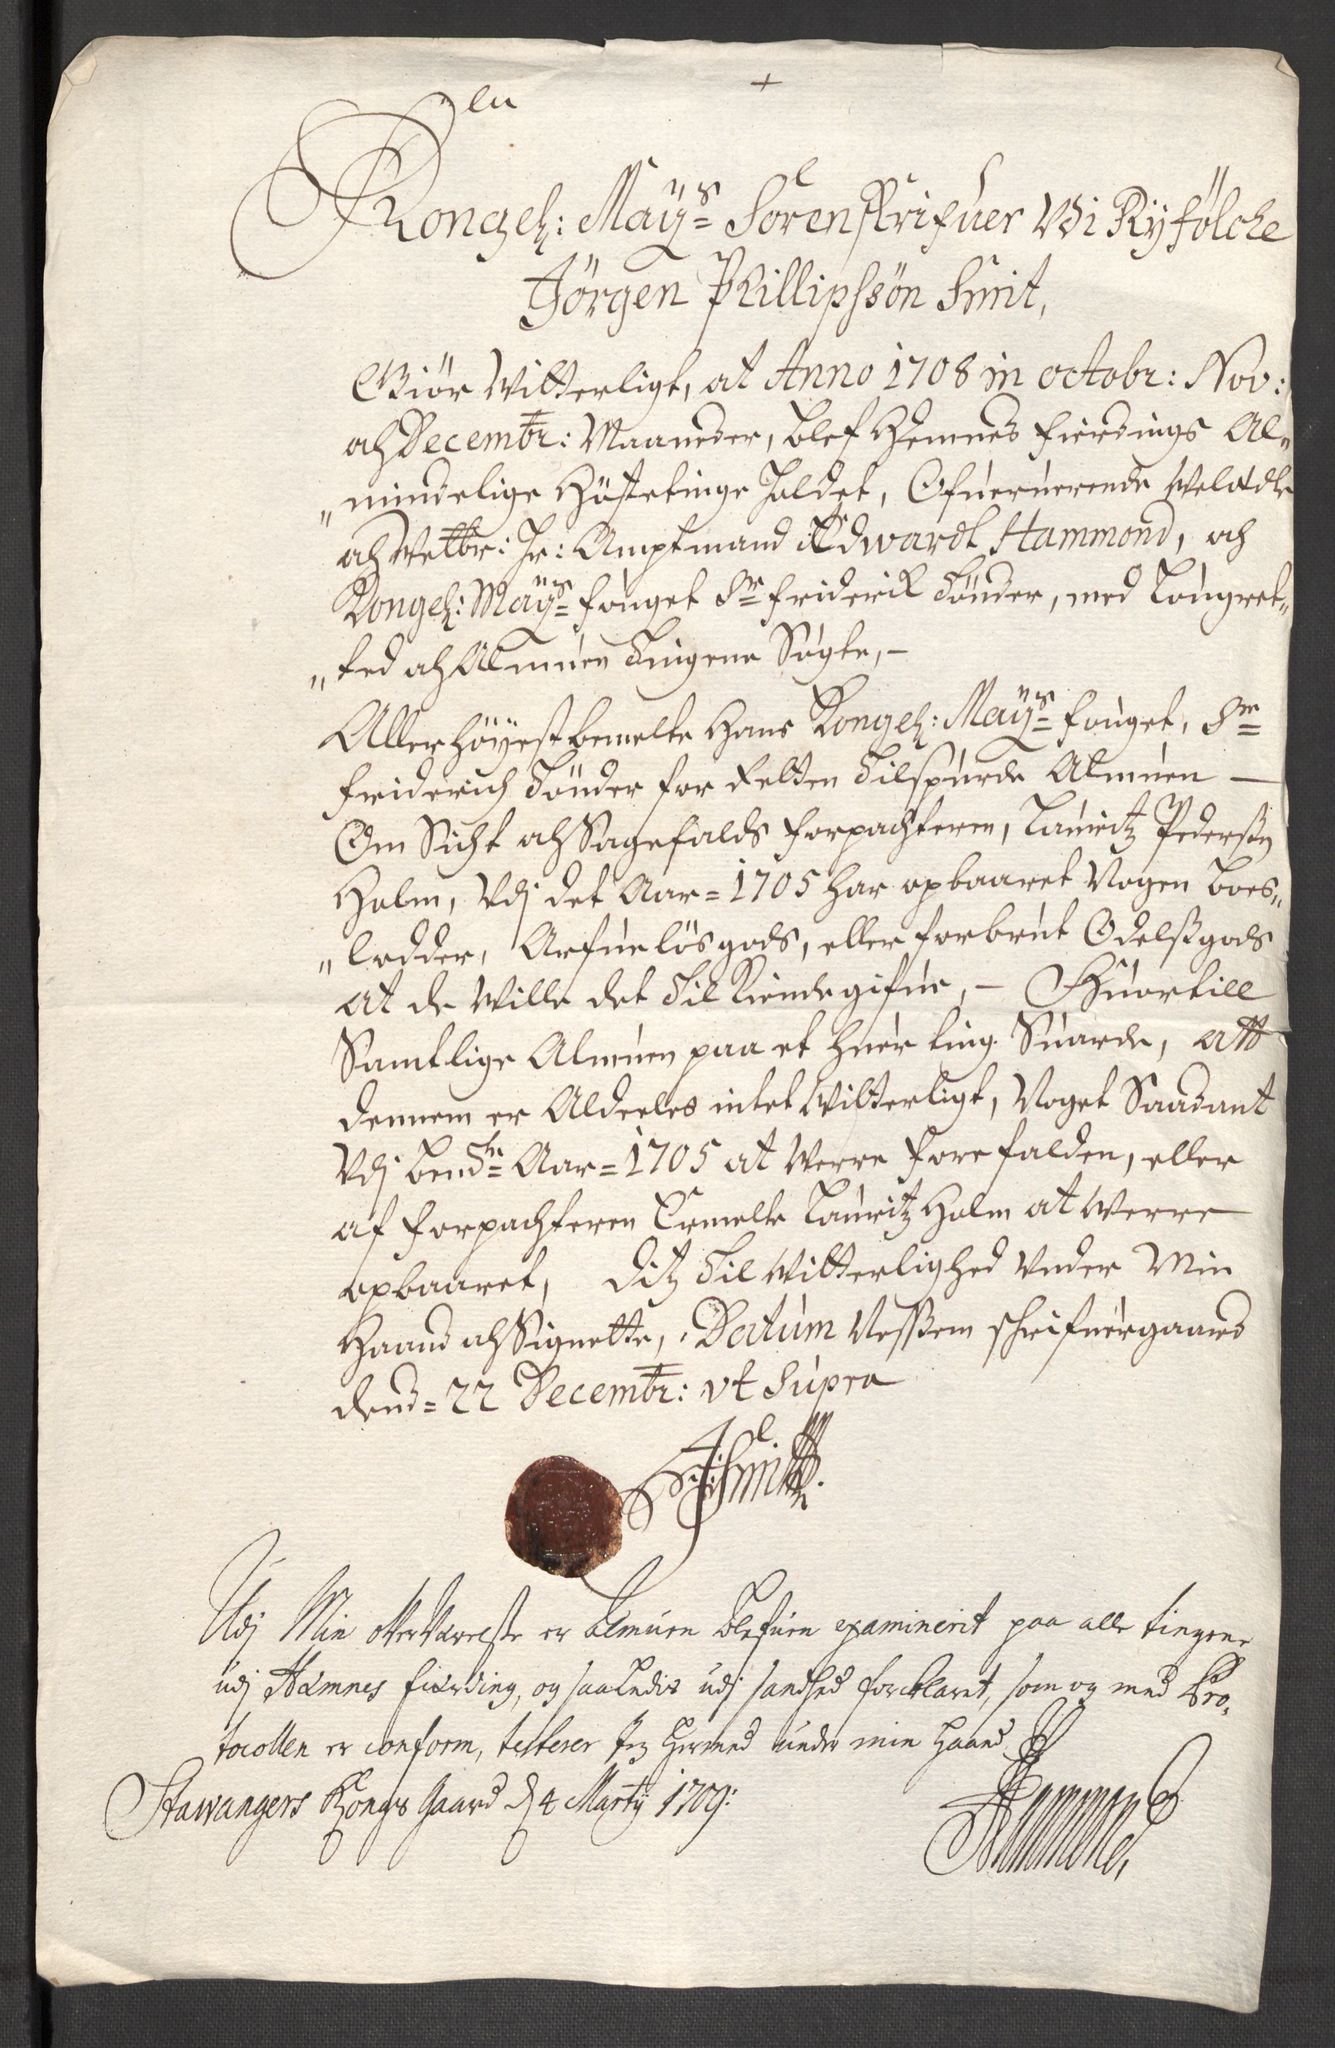 Kongel: Mayˢ= Sorenskrifuer Udi Ryfölche
Jörgen Phillipsön Smit,
Giör Witterligt, at Anno 1708 in octobr: Nov:
och Decembr: Maaneder, blef Hemnes fierdings Al„
„mindelige Höstetinge holdet, Ofueruerende Weladle
och Welbr: Hr: Amptmand Edwardt Hammond, och
Kongel: Mayˢ= fouget Sr= friderik Tönder, med Laugret„
„ted och Almuen Tingene Sögte, –
Allerhöÿestbemelte Hans Kongel: Mayˢ= fouget, Sr=
friderich Tönder for Retten Tilspurde Almuen –
Om Sicht och Sagefalds forpachteren, Lauritz Pedersøn
Holm, Udj det Aar = 1705 har opbaaret Nogen boes„
„lodder, Arfueløsgods, eller forbrut Odelssgods
at de Wille det Til Kiende gifue, – Huortill
Samtlige Almuen paa et huer ting Suarde, att
dennem er Aldeeles intet Witterligt, Noget Saadant
Udj bemte= Aar = 1705 at Werre forefalden, eller
af forpachteren bemelte Lauritz Holm at Werre
opbaaret, Ditz Til Witterlighed Under Min
Haand och Signette, Datum Nessem schrifuergaard
dend = 22 Decembr: ut Supra
JPSmitt
Udj Min offverværelse er almuen blefuen examinerit paa alle tingene
udj Hemnes fierding, og saaledis udj sandhed forklaret, som og med Pro„
tocollen er conform, testerer jeg hermed under min haand
Stawangers Kongs Gaard d 4 Martij 1709:
Hammond